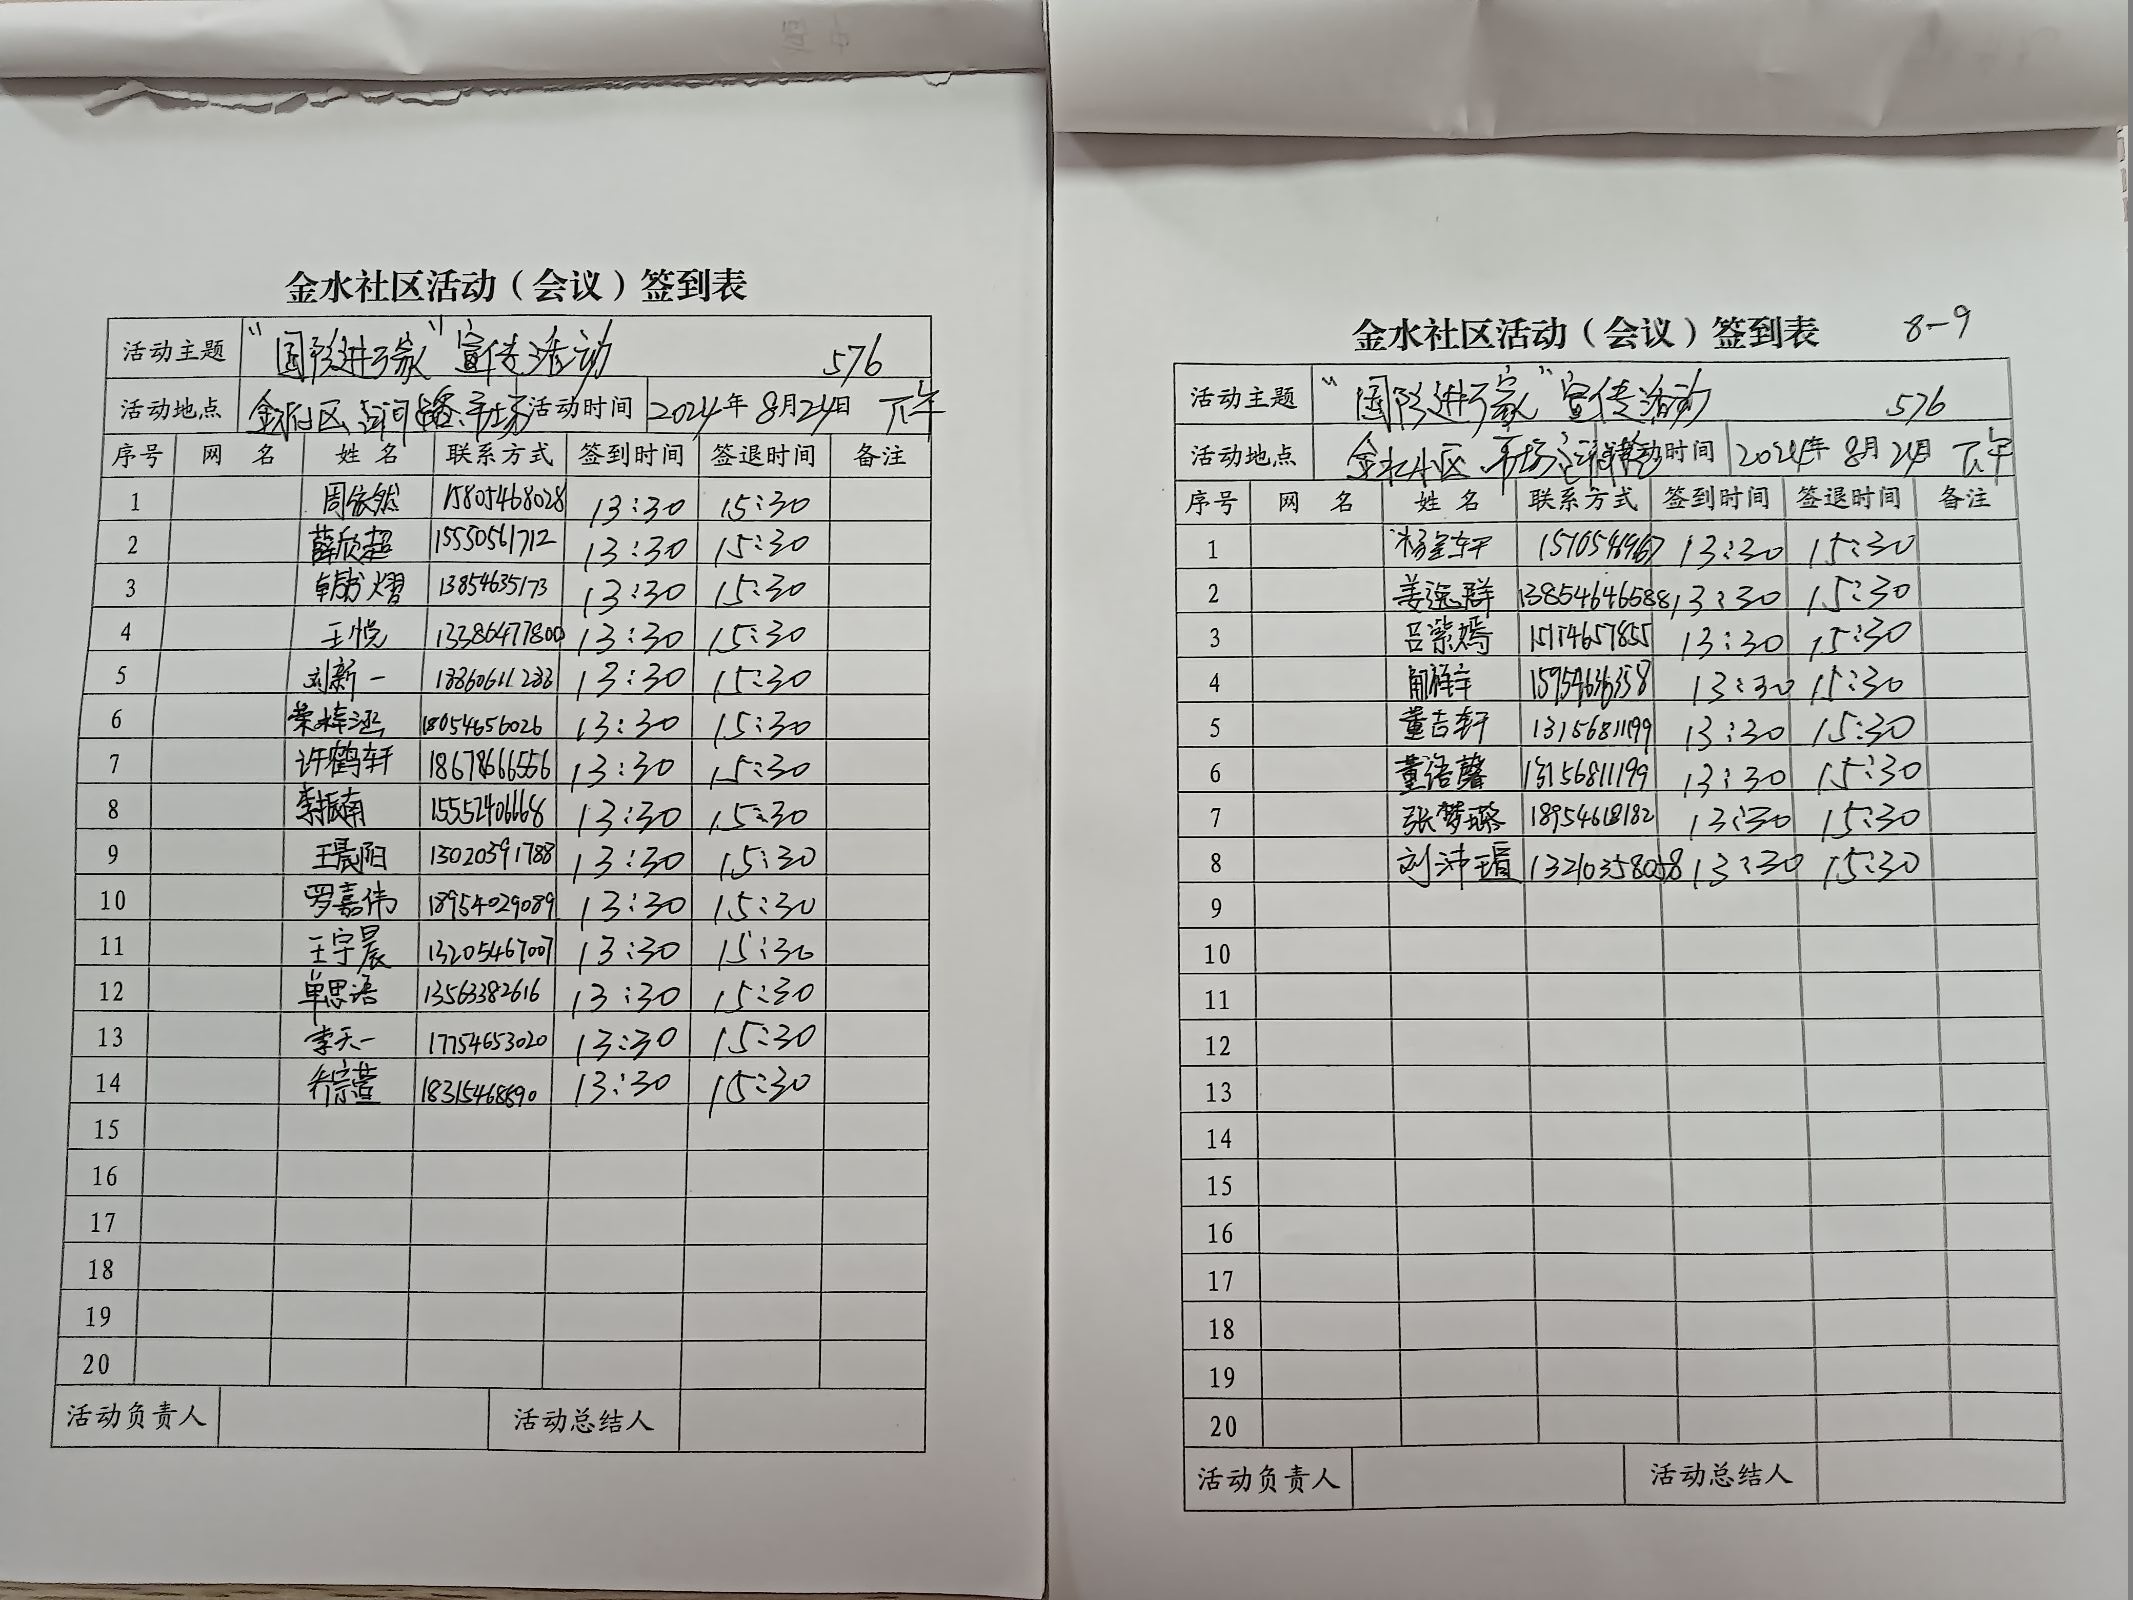 金水社区活动（会议）签到表
活动主题 "国防进万家"宣传活动 576
活动地点 金水社区 市场 活动时间 2024年8月24日 下午
序号 网 名 姓 名 联系方式 签到时间 签退时间 备注
1 周依然 15805468028 13:30 15:30
2 薛欣超 15550561712 13:30 15:30
3 13854635173 13:30 15:30
4 王悦 13386477800 13:30 15:30
5 刘新一 13:30 15:30
6 荣梓涵 18054656026 13:30 15:30
7 许鹤轩 18678666556 13:30 15:30
8 李振南 15552406668 13:30 15:30
9 王晨阳 13020391788 13:30 15:30
10 罗嘉伟 18954029089 13:30 15:30
11 王宇晨 13205467007 13:30 15:30
12 单思语 13563382616 13:30 15:30
13 李天一 17754653020 13:30 15:30
14 乔宗萱 13:30 15:30
15
16
17
18
19
20
活动负责人 活动总结人
金水社区活动（会议）签到表 8-9
活动主题 "国防进万家"宣传活动 576
活动地点 金水社区 市场 活动时间 2024年8月24日 下午
序号 网 名 姓 名 联系方式 签到时间 签退时间 备注
1 13:30 15:30
2 姜逸群 13854646588 13:30 15:30
3 吕紫嫣 15154657855 13:30 15:30
4 13:30 15:30
5 董吉轩 13156811199 13:30 15:30
6 董语馨 13156811199 13:30 15:30
7 张梦璐 18954618182 13:30 15:30
8 刘沛瑄 13210358058 13:30 15:30
9
10
11
12
13
14
15
16
17
18
19
20
活动负责人 活动总结人